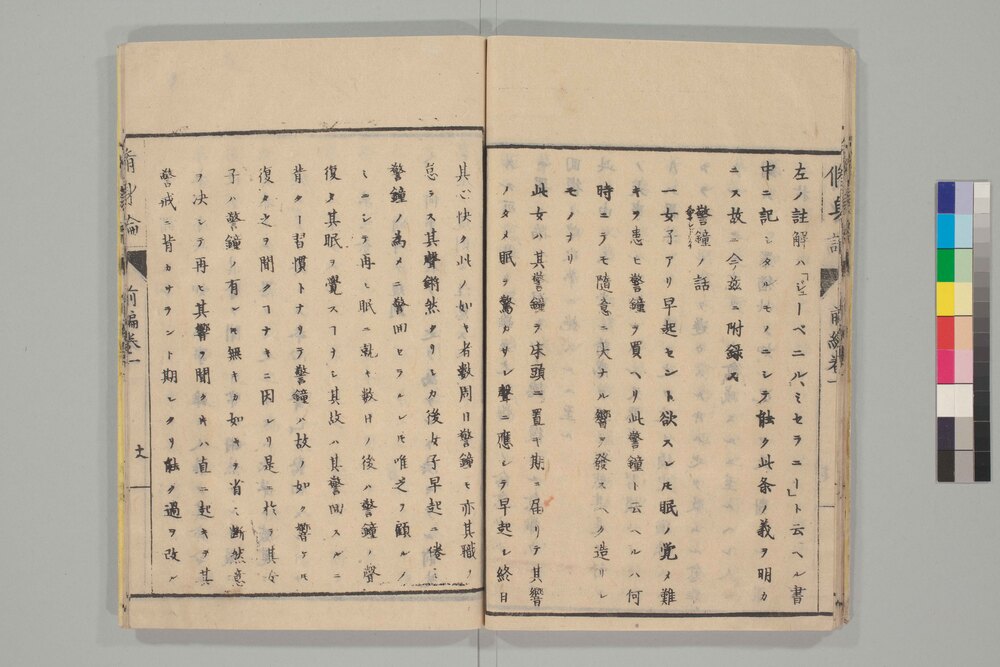 左ノ註解ハ「ジューベニル、ミセラニー」ト云ヘル書
中ニ記シタルモノニシテ能ク此条ノ義ヲ明カ
ニス故ニ今茲ニ附録ス
警鐘ノ話
一女子アリ早起セント欲スレモ眠ノ覚メ難
キヲ患ヒ警鐘ヲ買ヘリ此警鐘ト云ヘルハ何
時ニテモ随意ニ大ナル響ヲ發スヘク造リシ
モノナリ
此女ハ其警鐘ヲ床頭ニ置キ期ニ届リテ其響
ノタメ眠ヲ驚カサレ聲ニ應シテ早起シ終日
其心快ク此ノ如キ者数周日警鐘モ亦其職ヲ
怠ラス其聲鏘然タリシカ後女子早起ニ倦ミ
警鐘ノ為メニ警回セラルレモ唯之ヲ顧ルノ
ミニシテ再ヒ眠ニ就キ数日ノ後ハ警鐘ノ聲
復タ其眠ヲ覺スナシ其故ハ其警回スルニ
背クー習慣トナリテ警鐘ハ故ノ如ク響ケモ
復タ之ヲ聞クナキニ因レリ是ニ於テ其女
子ハ警鐘ノ有レモ無キカ如キヲ省ミ断然意
ヲ决シテ再ヒ其響ヲ聞クキハ直ニ起キテ其
警戒ニ背カサラント期シタリ能ク過ヲ改ル
脩身論
前編卷一